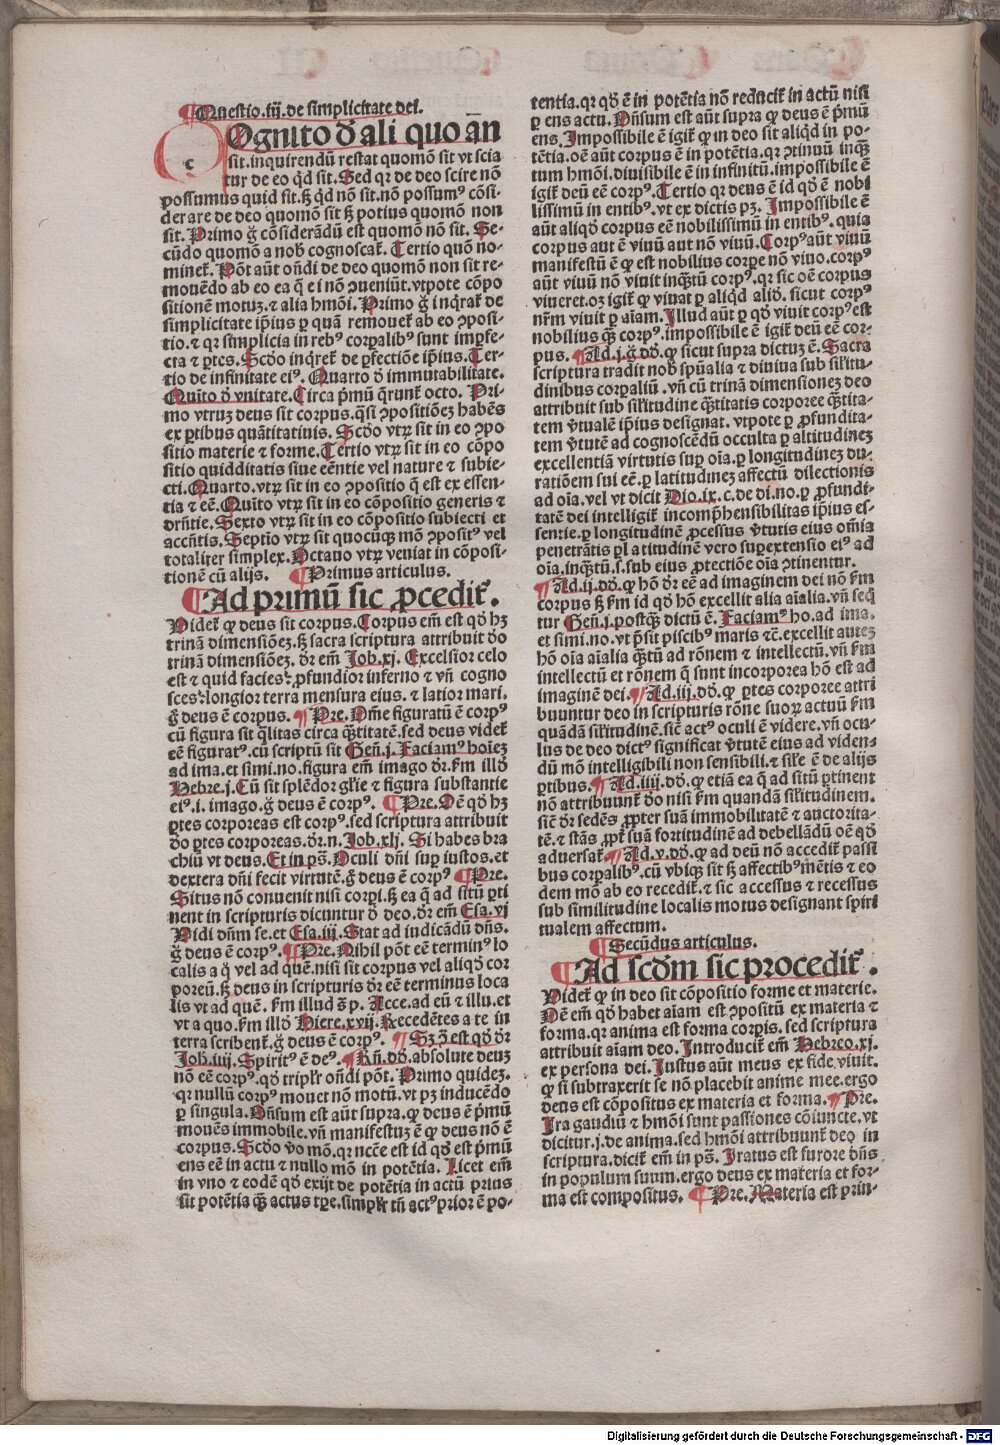 ¶Questio.iij.de simplicitate dei.
Ognito ð ali quo an̄
c
sit.inquirendū restat quomō sit vt scia
tur de eo qd̄ sit. Sed qꝛ de deo scire nō
possumus quid sit.sꝫ qd̄ nō sit.nō possumꝰ cōsi-
derare de deo quomō sit sꝫ potius quomō non
sit. Primo g̃ cōsiderādū est quomō nō sit. Se-
cūdo quomō a nob̄ cognoscat̄. Tertio quō no-
minet̄. Pōt aūt ondi de deo quomō non sit re-
mouēdo ab eo ea q̄ ei nō ꝯueniūt.vtpote cōpo
sitionē motuꝫ.⁊ alia hmōi. Primo g̃ inq̄rat̄ de
simplicitate ip̄ius ꝑ quā remouet̄ ab eo ꝯposi-
tio.⁊ qꝛ simplicia in rebꝰ corꝑalibꝰ sunt imꝑfe-
cta ⁊ ꝑtes. Scd̄o inq̄ret̄ de ꝑfectiōe ip̄ius. Ter-
tio de infinitate eiꝰ. Quarto ð immutabilitate.
Quīto ð vnitate. Circa pᵐū q̄runt̄ octo. Pri-
mo vtruꝫ deus sit corpus.q̄si ꝯpositiōeꝫ habēs
ex ꝑtibus quātitatiuis. Scd̄o vtꝝ sit in eo ꝯpo
sitio materie ⁊ forme. Tertio vtꝝ sit in eo cōpo
sitio quidditatis siue eēntie vel nature ⁊ subie-
cti. Quarto.vtꝝ sit in eo ꝯpositio q̄ est ex essen-
tia ⁊ eē. Quīto vtꝝ sit in eo cōpositio generis ⁊
drn̄tie. Sexto vtꝝ sit in eo cōpositio subiecti et
accn̄tis. Septīo vtꝝ sit quocūqꝫ mō ꝯpositꝰ vel
totaliter simplex. Octauo vtꝝ veniat in cōposi-
tionē cū alijs. ¶Primus articulus.
¶Ad primū sic ꝓcedit̄.
Videt̄ ꝙ deus sit corpus. Corpus em̄ est qð hꝫ
trinā dimensiōeꝫ.sꝫ sacra scriptura attribuit ðo
trinā dimensiōeꝫ. ðr em̄ Job.xj. Excelsior celo
est ⁊ quid facies.ꝓfundior inferno ⁊ vn̄ cogno
sces.longior terra mensura eius.⁊ latior mari.
g̃ deus ē corpus. ¶Pre. Om̄e figuratū ē corpꝰ
cū figura sit q̄litas circa q̄titatē.sed deus videt̄
eē figuratꝰ.cū scriptū sit Gen̄.j. Faciamꝰ hoīeꝫ
ad ima.et simi.no.figura em̄ imago ðr.ẜm illð
Hebre.j. Cū sit splēdor glīe ⁊ figura substantie
eiꝰ.i.imago.g̃ deus ē corpꝰ. ¶Pre. Oē qð hꝫ
ꝑtes corporeas est corpꝰ.sed scriptura attribuit
ðo ꝑtes corporeas.ðr.n. Job.xlj. Si habes bra
chiū vt deus. Et in ps̄. Oculi dn̄i suꝑ iustos.et
dextera dn̄i fecit virtutē.g̃ deus ē corpꝰ ¶Pre.
Situs nō conuenit nisi corꝑi.sꝫ ea q̄ ad sitū ꝑti
nent in scripturis dicuntur ð deo.ðr em̄ Esa.vj
Vidi dn̄m se.et Esa.iij. Stat ad iudicādū dn̄s.
g̃ deus ē corpꝰ. ¶Pre. Nihil pōt eē terminꝰ lo
calis a q̊ vel ad quē.nisi sit corpus vel aliqð cor
poreū.sꝫ deus in scripturis ðr eē terminus loca
lis vt ad quē.ẜm illud īs p̄. Acce.ad eū ⁊ illu.et
vt a quo.ẜm illð Hiere.xvij. Recedētes a te in
terra scribent̄.g̃ deus ē corpꝰ. ¶Sꝫ ꝯ̄ est qð ðr
Joh̄.iiij. Spiritꝰ ē deꝰ. ¶Rn̄.ðð.absolute deuꝫ
nō eē corpꝰ.qð tripl̄r ondi pōt. Primo quideꝫ.
qꝛ nullū corpꝰ mouet nō motū.vt pꝫ inducēdo
ꝑ singula. Oñsum est aūt supra.ꝙ deus ē pᵐū
mouēs immobile.vn̄ manifestuꝫ ē ꝙ deus nō ē
corpus. Scd̄o v̄o mō.qꝛ ncc̄e est id qð est pᵐū
ens eē in actu ⁊ nullo mō in potētia. Licet em̄
in vno ⁊ eodē qð exijt de potētia in actū prius
sit potētia q̄ꝫ actus tꝑe.simpl̄r tn̄ actꝰ prior ē po-
tentia.qꝛ qð ē in potētia nō reducit̄ in actū nisi
ꝑ ens actu. Oñsum est aūt supra ꝙ deus ē pᵐū
ens. Impossibile ē igit̄ ꝙ in deo sit aliqd in po-
tētia.oē aūt corpus ē in potētia.qꝛ ꝯtinuū inq̄ꝫ
tum hmōi.diuisibile ē in infinitū.impossibile ē
igit̄ deū eē corpꝰ. Tertio qꝛ deus ē id qð ē nobi
lissimū in entibꝰ.vt ex dictis pꝫ. Impossibile ē
aūt aliqð corpus eē nobilissimū in entibꝰ.quia
corpus aut ē viuū aut nō viuū. Corpꝰ aūt viuū
manifestū ē ꝙ est nobilius corpe nō viuo.corpꝰ
aūt viuū nō viuit inq̄ꝫtū corpꝰ.qꝛ sic oē corpus
viueret.oꝫ igit̄ ꝙ viuat ꝑ aliqd alið. sicut corpꝰ
nr̄m viuit ꝑ aīam. Illud aūt ꝑ qð viuit corpꝰ est
nobilius q̄ꝫ corpꝰ.impossibile ē igit̄ deū eē cor-
pus. ¶Ad.j.g̃ ðð.ꝙ sicut supra dictuꝫ ē. Sacra
scriptura tradit nob̄ spūalia ⁊ diuina sub sil̄itu-
dinibus corꝑaliū. vn̄ cū trinā dimensioneꝫ deo
attribuit sub sil̄itudine q̄ꝫtitatis corporee q̄ꝫtita-
tem v̄tualē ip̄ius designat. vtpote ꝑ ꝓfundita-
tem v̄tutē ad cognoscēdū occulta ꝑ altitudineꝫ
excellentiā virtutis suꝑ oīa.ꝑ longitudineꝫ du-
ratiōem sui eē.ꝑ latitudineꝫ affectū dilectionis
ad oīa.vel vt dicit Dio.ix.c.de di.no.ꝑ ꝓfundi-
tatē dei intelligit̄ incomp̄hensibilitas ip̄ius es-
sentie.ꝑ longitudinē ꝓcessus v̄tutis eius om̄ia
penetrātis ꝑ latitudinē vero suꝑextensio eiꝰ ad
oīa.inq̄ꝫtū.s.sub eius ꝓtectiōe oīa ꝯtinentur.
¶Ad.ij.ðð.ꝙ hō ðr eē ad imaginem dei nō ẜm
corpus sꝫ ẜm id qð hō excellit alia aīalia.vn̄ seq̄
tur Gen̄.j.postq̄ꝫ dictū ē. Faciamꝰ ho.ad ima.
et simi.no.vt p̄sit piscibꝰ maris ⁊c̄.excellit auteꝫ
hō oīa aīalia q̄ꝫtū ad rōnem ⁊ intellectū.vn̄ ẜm
intellectū et rōnem q̄ sunt incorporea hō est ad
imaginē dei. ¶Ad.iij.ðð.ꝙ ꝑtes corporee attri
buuntur deo in scripturis rōne suoꝝ actuū ẜm
quādā sil̄itudinē.sic̄ actꝰ oculi ē videre.vn̄ ocu-
lus de deo dictꝰ significat v̄tutē eius ad viden-
dū mō intelligibili non sensibili.⁊ sil̄e ē de alijs
ꝑtibus. ¶Ad.iiij.ðð.ꝙ etiā ea q̄ ad sitū ꝑtinent
nō attribuunt̄ ðo nisi ẜm quandā sil̄itudinem.
sic̄ ðr sedēs ꝓpter suā immobilitatē ⁊ auctorita-
tē.⁊ stās ꝓpt̄ suā fortitudinē ad debellādū oē qð
aduersat̄. ¶Ad.v.ðð.ꝙ ad deū nō accedit̄ passi
bus corꝑalibꝰ.cū vbiqꝫ sit sꝫ affectibꝰ mētis ⁊ eo
dem mō ab eo recedit̄.⁊ sic accessus ⁊ recessus
sub similitudine localis motus designant spiri
tualem affectum.
¶Secūdus articulus.
¶Ad scd̄m sic procedit̄.
Videt̄ ꝙ in deo sit cōpositio forme et materie.
Oē em̄ qð habet aīam est ꝯpositū ex materia ⁊
forma.qꝛ anima est forma corꝑis.sed scriptura
attribuit aīam deo. Introducit̄ em̄ Hebreo.xj.
ex persona dei. Justus aūt meus ex fide viuit.
ꝙ si subtraxerit se nō placebit anime mee.ergo
deus est cōpositus ex materia et forma. ¶Pre.
Ira gaudiū ⁊ hmōi sunt passiones cōiuncte.vt
dicitur.j.de anima.sed hmōi attribuunt̄ deo in
scriptura.dicit̄ em̄ in ps̄. Iratus est furore dn̄s
in populum suum.ergo deus ex materia et for-
ma est compositus. ¶Pre. Materia est prin-
Digitalisierung gefördert durch die Deutsche Forschungsgemeinschaft - DFG